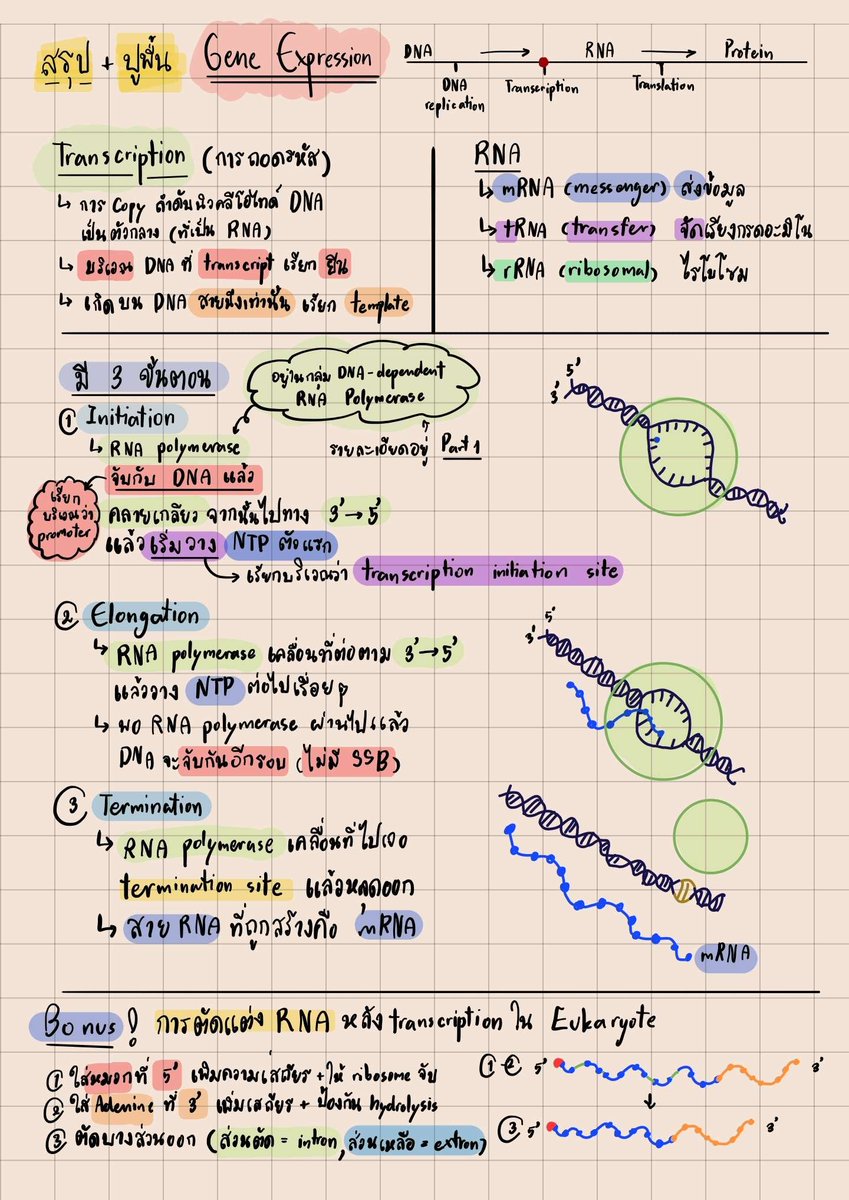 สรุป + ปูพื้น Gene Expression
DNA → RNA → Protein
DNA replication
Transcription
Translation
Transcription (การถอดรหัส)
↳ การ Copy ลำดับนิวคลีโอไทด์ DNA
เป็นตัวกลาง (ที่เป็น RNA)
↳ บริเวณ DNA ที่ transcript เรียก ยีน
↳ เกิดบน DNA สายนึงเท่านั้น เรียก template
RNA
↳ mRNA (messanger) ส่งข้อมูล
↳ tRNA (transfer) จัดเรียงกรดอะมิโน
↳ rRNA (ribosomal) ไรโบโซม
มี 3 ขั้นตอน
อยู่ในกลุ่ม DNA-dependent
RNA Polymerase
รายละเอียดอยู่ Part 1
① Initiation
↳ RNA polymerase
จับกับ DNA แล้ว
เรียก
บริเวณว่า
promoter
คลายเกลียว จากนั้นไปทาง 3' → 5'
แล้ว เริ่มวาง NTP ตัวแรก
→ เรียกบริเวณว่า transcription initiation site
5'
3'
② Elongation
↳ RNA polymerase เคลื่อนที่ต่อตาม 3' → 5'
แล้ววาง NTP ต่อไปเรื่อยๆ
↳ พอ RNA polymerase ผ่านไปแล้ว
DNA จะจับกันอีกรอบ (ไม่มี SSB)
5'
3'
③ Termination
↳ RNA polymerase เคลื่อนที่ไปเจอ
termination site แล้วหลุดออก
↳ สาย RNA ที่ถูกสร้างคือ mRNA
mRNA
Bonus! การตัดแต่ง RNA หลัง transcription ใน Eukaryote
① ใส่หมวกที่ 5' เพิ่มความเสถียร + ให้ ribosome จับ
② ใส่ Adenine ที่ 3' เพิ่มเสถียร + ป้องกัน hydrolysis
③ ตัดบางส่วนออก (ส่วนตัด = intron, ส่วนเหลือ = extron)
①-② 5' 3'
③ 5' 3'